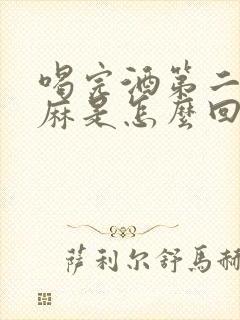 喝完酒第二
麻是怎麼回
萨利尔舒馬赫